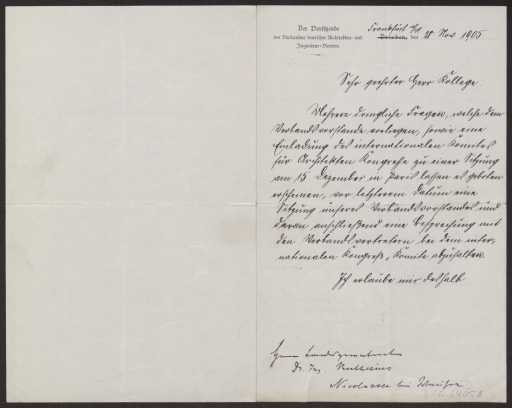 Der Vorsitzende
des Verbandes deutscher Architekten- und
Ingenieur-Vereine.
Frankfurt a/M
den 28 Nov. 1905
Sehr geehrter Herr Kollege.
Mehrere dringliche Fragen, welche dem
Verbandsvorstande vorliegen, sowie eine
Einladung des internationalen Komites
für Architekten Kongresse zu einer Sitzung
am 15 Dezember in Paris lassen es geboten
erscheinen, vor letzterem Datum eine
Sitzung unseres Verbandsvorstandes und
daran anschließend eine Besprechung mit
den Verbandsvertretern bei dem inter-
nationalen Kongreß-Komite abzuhalten.
Ich erlaube mir deshalb
Herrn
Dr. Ing. Muthesius
Nicolassee bei